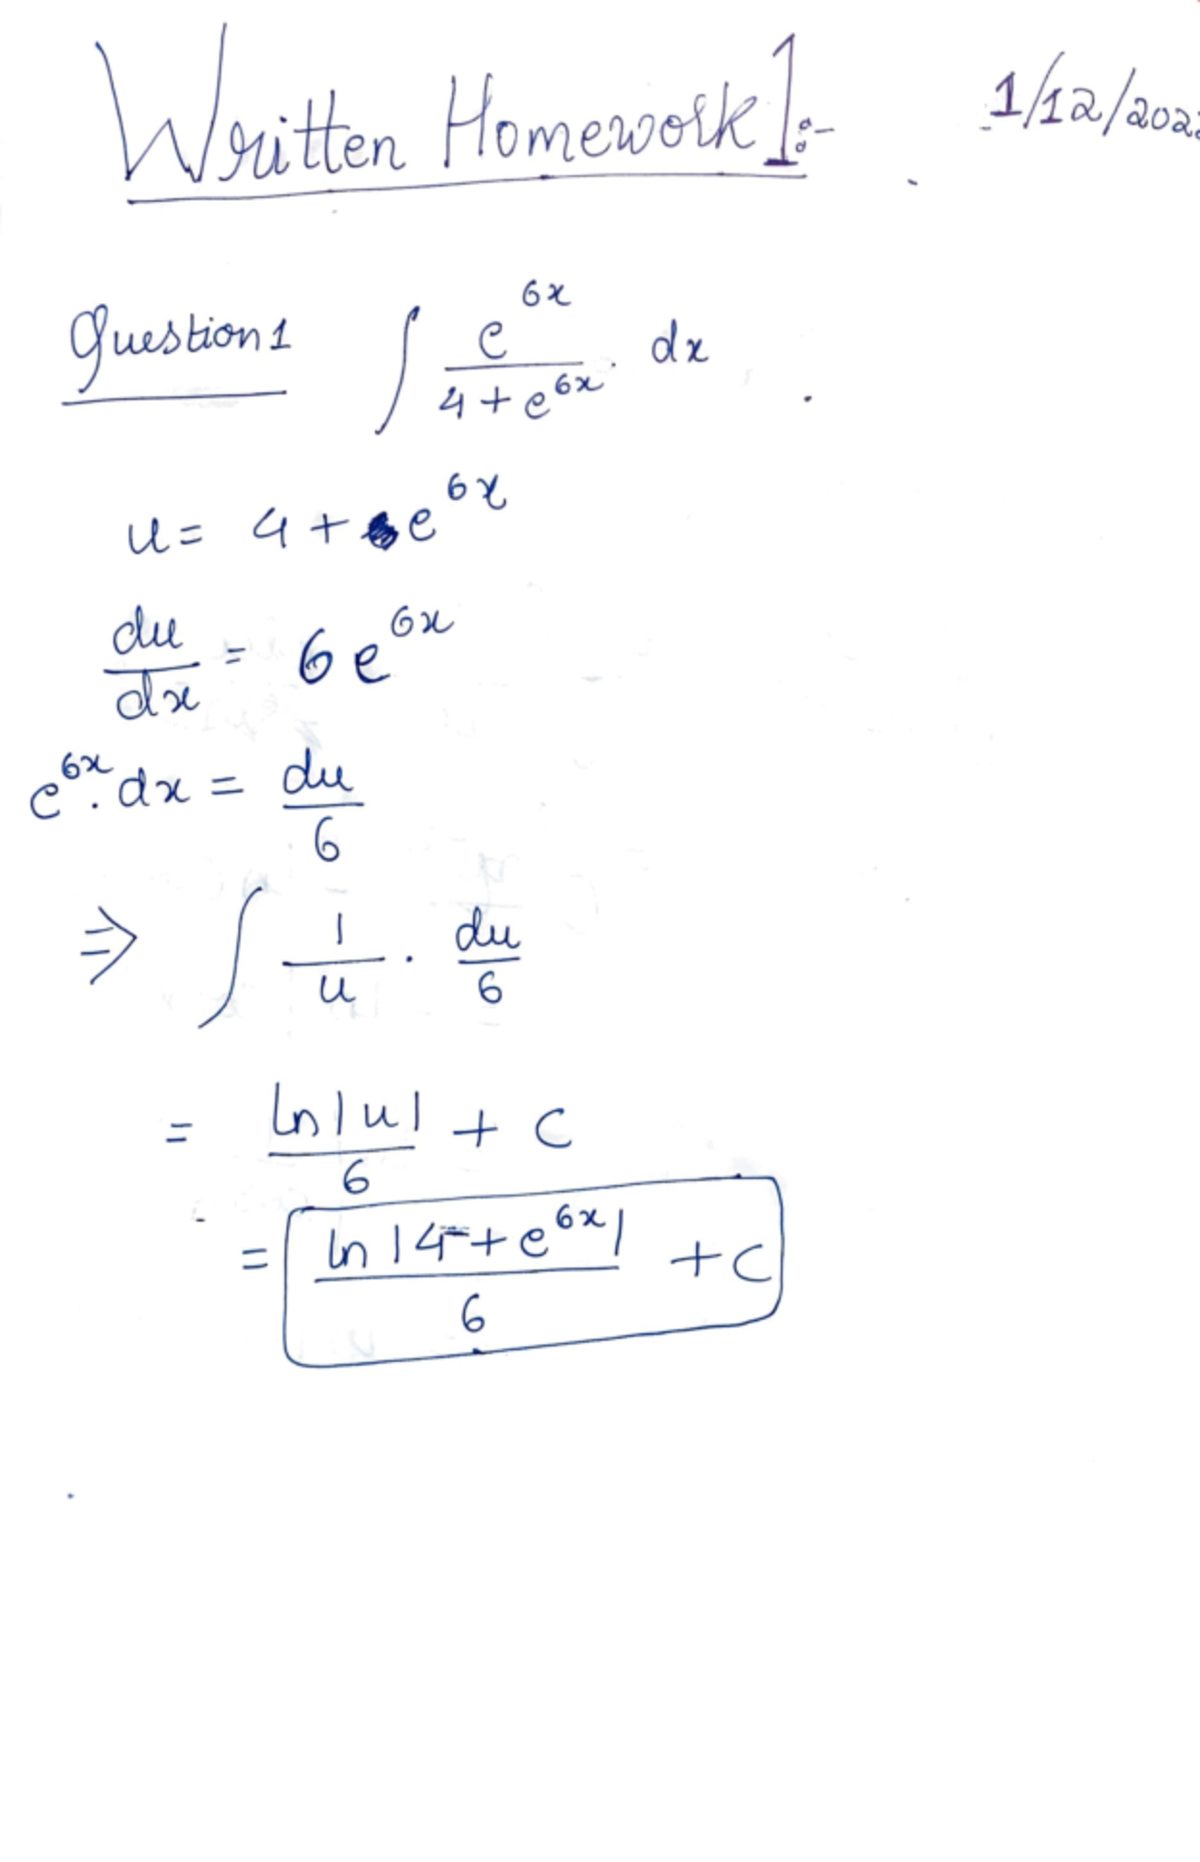 Written Homework 1:-
1/12/202
Question 1 ∫ e^{6x} / (4 + e^{6x}) . dx
u = 4 + e^{6x}
du/dx = 6e^{6x}
e^{6x} . dx = du/6
⇒ ∫ 1/u . du/6
= ln|u|/6 + C
= ln|4 + e^{6x}|/6 + C